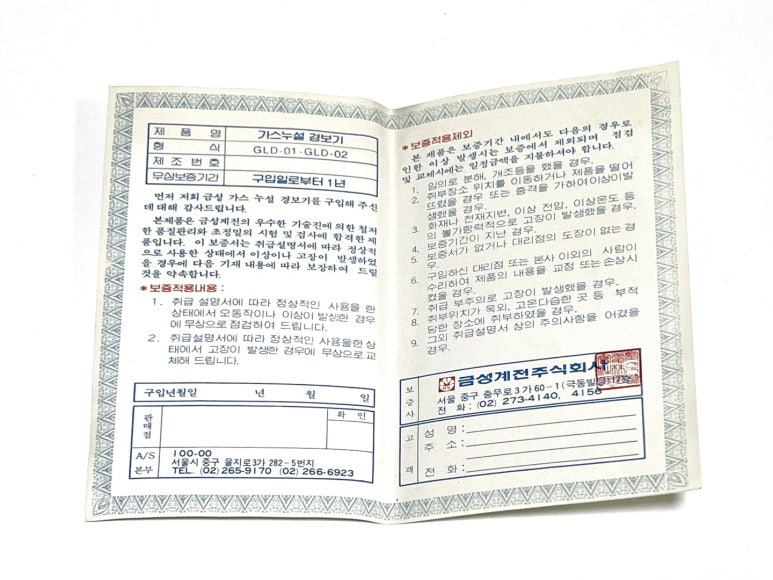 제 품 명 가스누설 경보기
형 식 GLD-01·GLD-02
제 조 번 호
무상보증기간 구입일로부터 1년
먼저 저희 금성 가스 누설 경보기를 구입해 주신
데 대해 감사드립니다.
본제품은 금성계전의 우수한 기술진에 의한 철저
한 품질관리와 초정밀의 시험 및 검사에 합격한 제
품입니다. 이 보증서는 취급설명서에 따라 정상적
으로 사용한 상태에서 이상이나 고장이 발생하였
을 경우에 다음 기재 내용에 따라 보장하여 드릴
것을 약속합니다.
*보증적용내용 :
1. 취급 설명서에 따라 정상적인 사용을 한
상태에서 오동작이나 이상이 발생한 경우
에 무상으로 점검하여 드립니다.
2. 취급설명서에 따라 정상적인 사용을한 상
태에서 고장이 발생한 경우에 무상으로 교
체해 드립니다.
구입년월일 년 월 일
판매점 확 인
A/S 본부
100-00
서울시 중구 을지로3가 282-5번지
TEL. (02) 265-9170 (02) 266-6923
*보증적용제외
본 제품은 보증기간 내에서도 다음의 경우로
인한 이상 발생시는 보증에서 제외되며 점검
및 교체시에는 일정금액을 지불하셔야 합니다.
1. 임의로 분해, 개조등을 했을 경우.
2. 취부장소 위치를 이동하거나 제품을 떨어
뜨렸을 경우 또는 충격을 가하여이상이발
생했을 경우.
3. 화재나 천재지변, 이상 전압, 이상온도 등
의 불가항력적으로 고장이 발생했을 경우.
4. 보증기간이 지난 경우.
5. 보증서가 없거나 대리점의 도장이 없는 경
우.
6. 구입하신 대리점 또는 본사 이외의 사람이
수리하여 제품의 내용을 교정 또는손상시
켰을 경우.
7. 취급 부주의로 고장이 발생했을 경우.
8. 취부위가 옥외, 고온다습한 곳 등 부적
당한 장소에 취부하였을 경우.
9. 그외 취급설명서 상의 주의사항을 어겼을
경우.
보증사
금성계전주식회사
서울 중구 충무로3가60-1(극동빌딩
전 화 : (02) 273-4140, 4156
고 객
성 명 :
주 소 :
전 화 :